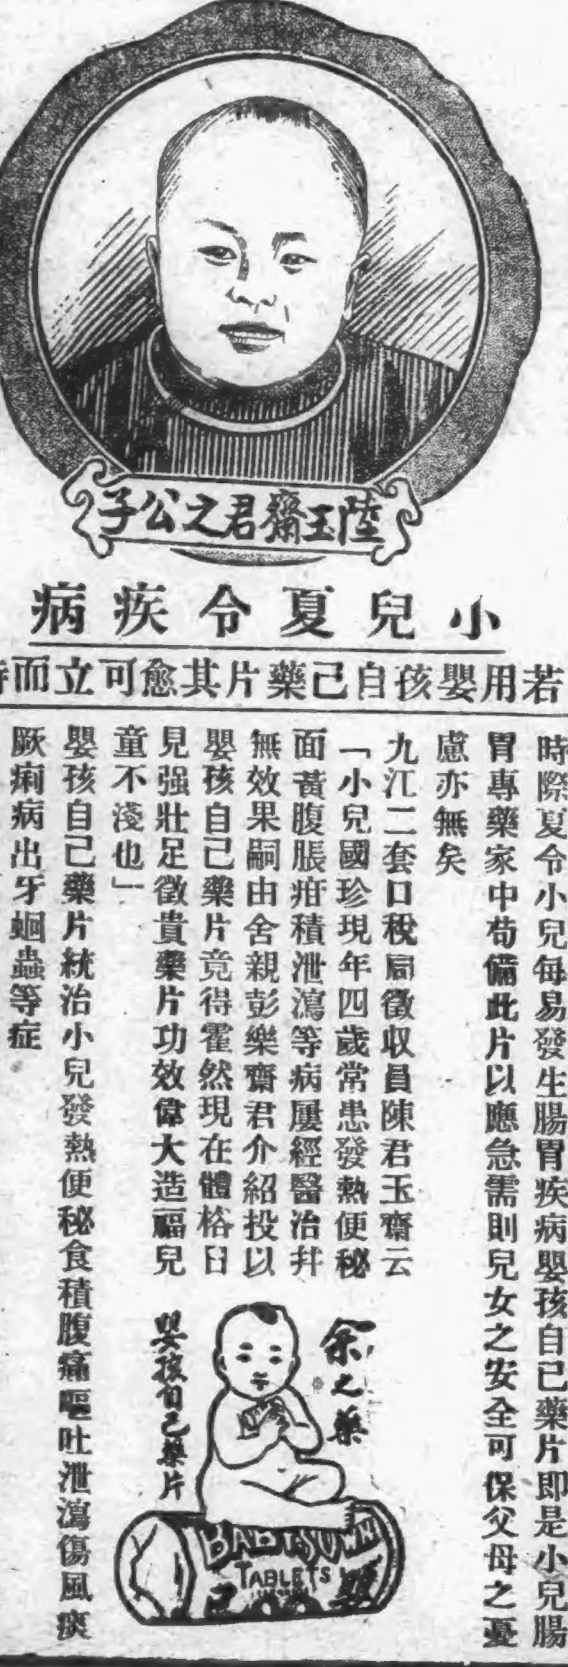 陸玉齋君之公子
小兒夏令疾病
若用嬰孩自己藥片其愈可立而待
時際夏令小兒每易發生腸胃疾病嬰孩自己藥片即是小兒腸
胃專藥家中苟備此片以應急需則兒女之安全可保父母之憂
慮亦無矣
九江二套口稅局徵收員陳君玉齋云
「小兒國珍現年四歲常患發熱便秘
面黃腹脹疳積泄瀉等病屢經醫治幷
無效果嗣由舍親彭樂齋君介紹投以
嬰孩自己藥片竟得霍然現在體格日
見强壯足徵貴藥片功效偉大造福兒
童不淺也」
嬰孩自己藥片統治小兒發熱便秘食積腹痛嘔吐泄瀉傷風痰
厥痢病出牙蛔蟲等症
余之藥
嬰孩自己藥片
BABY'S OWN
TABLETS